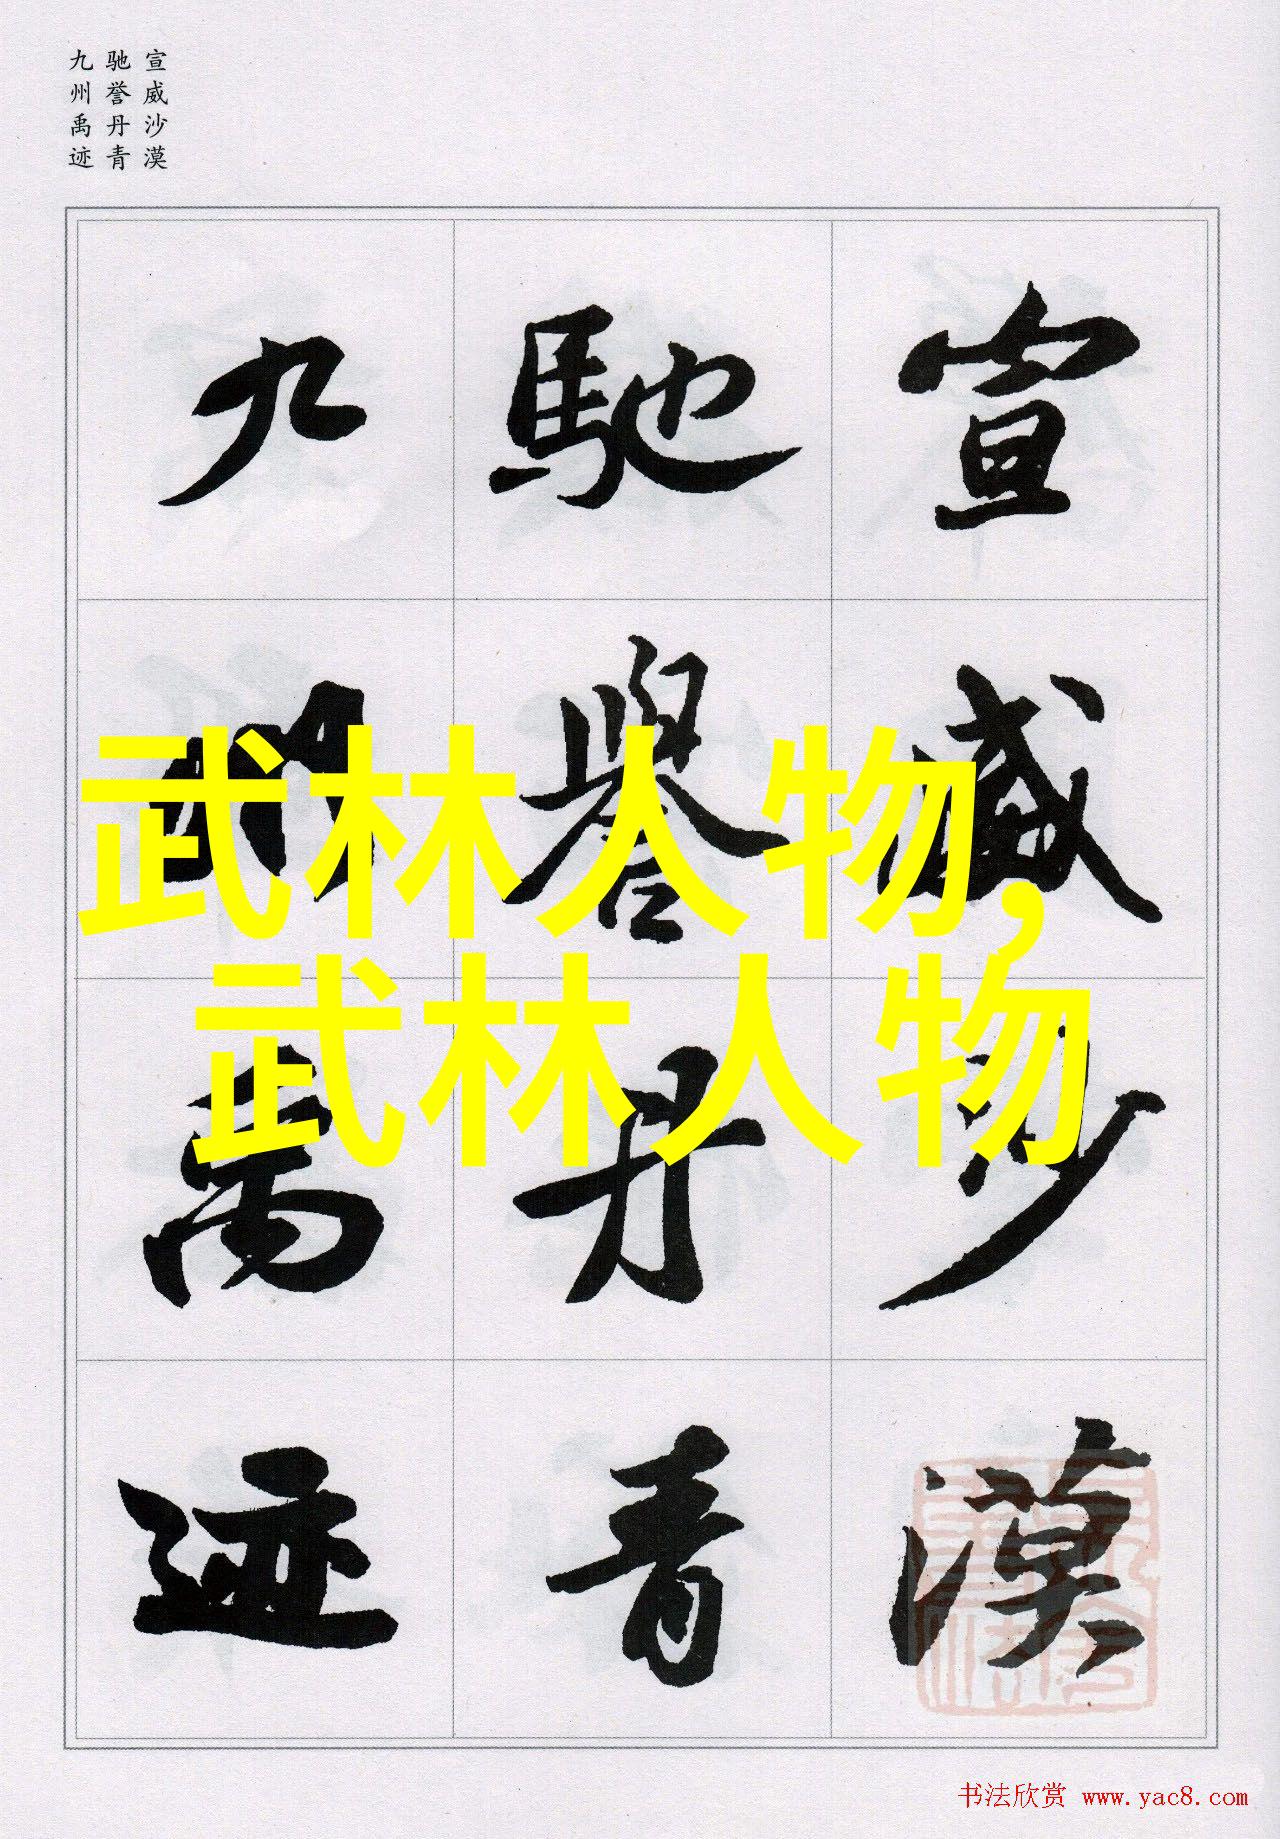 宣威沙漠
驰誉丹青
九州禹迹
宣威沙漠
馳譽丹青
九州禹迹
武林人物,
武林人物
书法欣赏 www.yac8.com